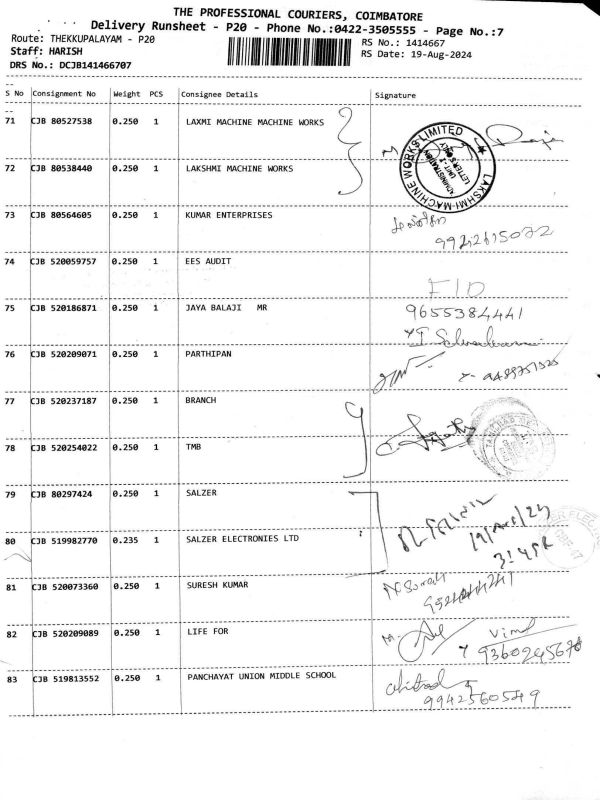 THE PROFESSIONAL COURIERS, COIMBATORE
Delivery Runsheet - P20 - Phone No.:0422-3505555 - Page No.:7
Route: THEKKUPALAYAM - P20
RS No.: 1414667
Staff: HARISH
RS Date: 19-Aug-2024
DRS No.: DCJB141466707
S No Consignment No Weight PCS Consignee Details Signature
71 CJB 80527538 0.250 1 LAXMI MACHINE MACHINE WORKS
LAKSHMI MACHINE WORKS LIMITED
ADMINISTRATION
UNIT-I
LETTERS ONLY
72 CJB 80538440 0.250 1 LAKSHMI MACHINE WORKS
73 CJB 80564605 0.250 1 KUMAR ENTERPRISES
74 CJB 520059757 0.250 1 EES AUDIT
75 CJB 520186871 0.250 1 JAYA BALAJI MR
9655384441
76 CJB 520209071 0.250 1 PARTHIPAN
77 CJB 520237187 0.250 1 BRANCH
78 CJB 520254022 0.250 1 TMB
79 CJB 80297424 0.250 1 SALZER
80 CJB 519982770 0.235 1 SALZER ELECTRONIES LTD
81 CJB 520073360 0.250 1 SURESH KUMAR
82 CJB 520209089 0.250 1 LIFE FOR
Vimal
83 CJB 519813552 0.250 1 PANCHAYAT UNION MIDDLE SCHOOL
9942560549